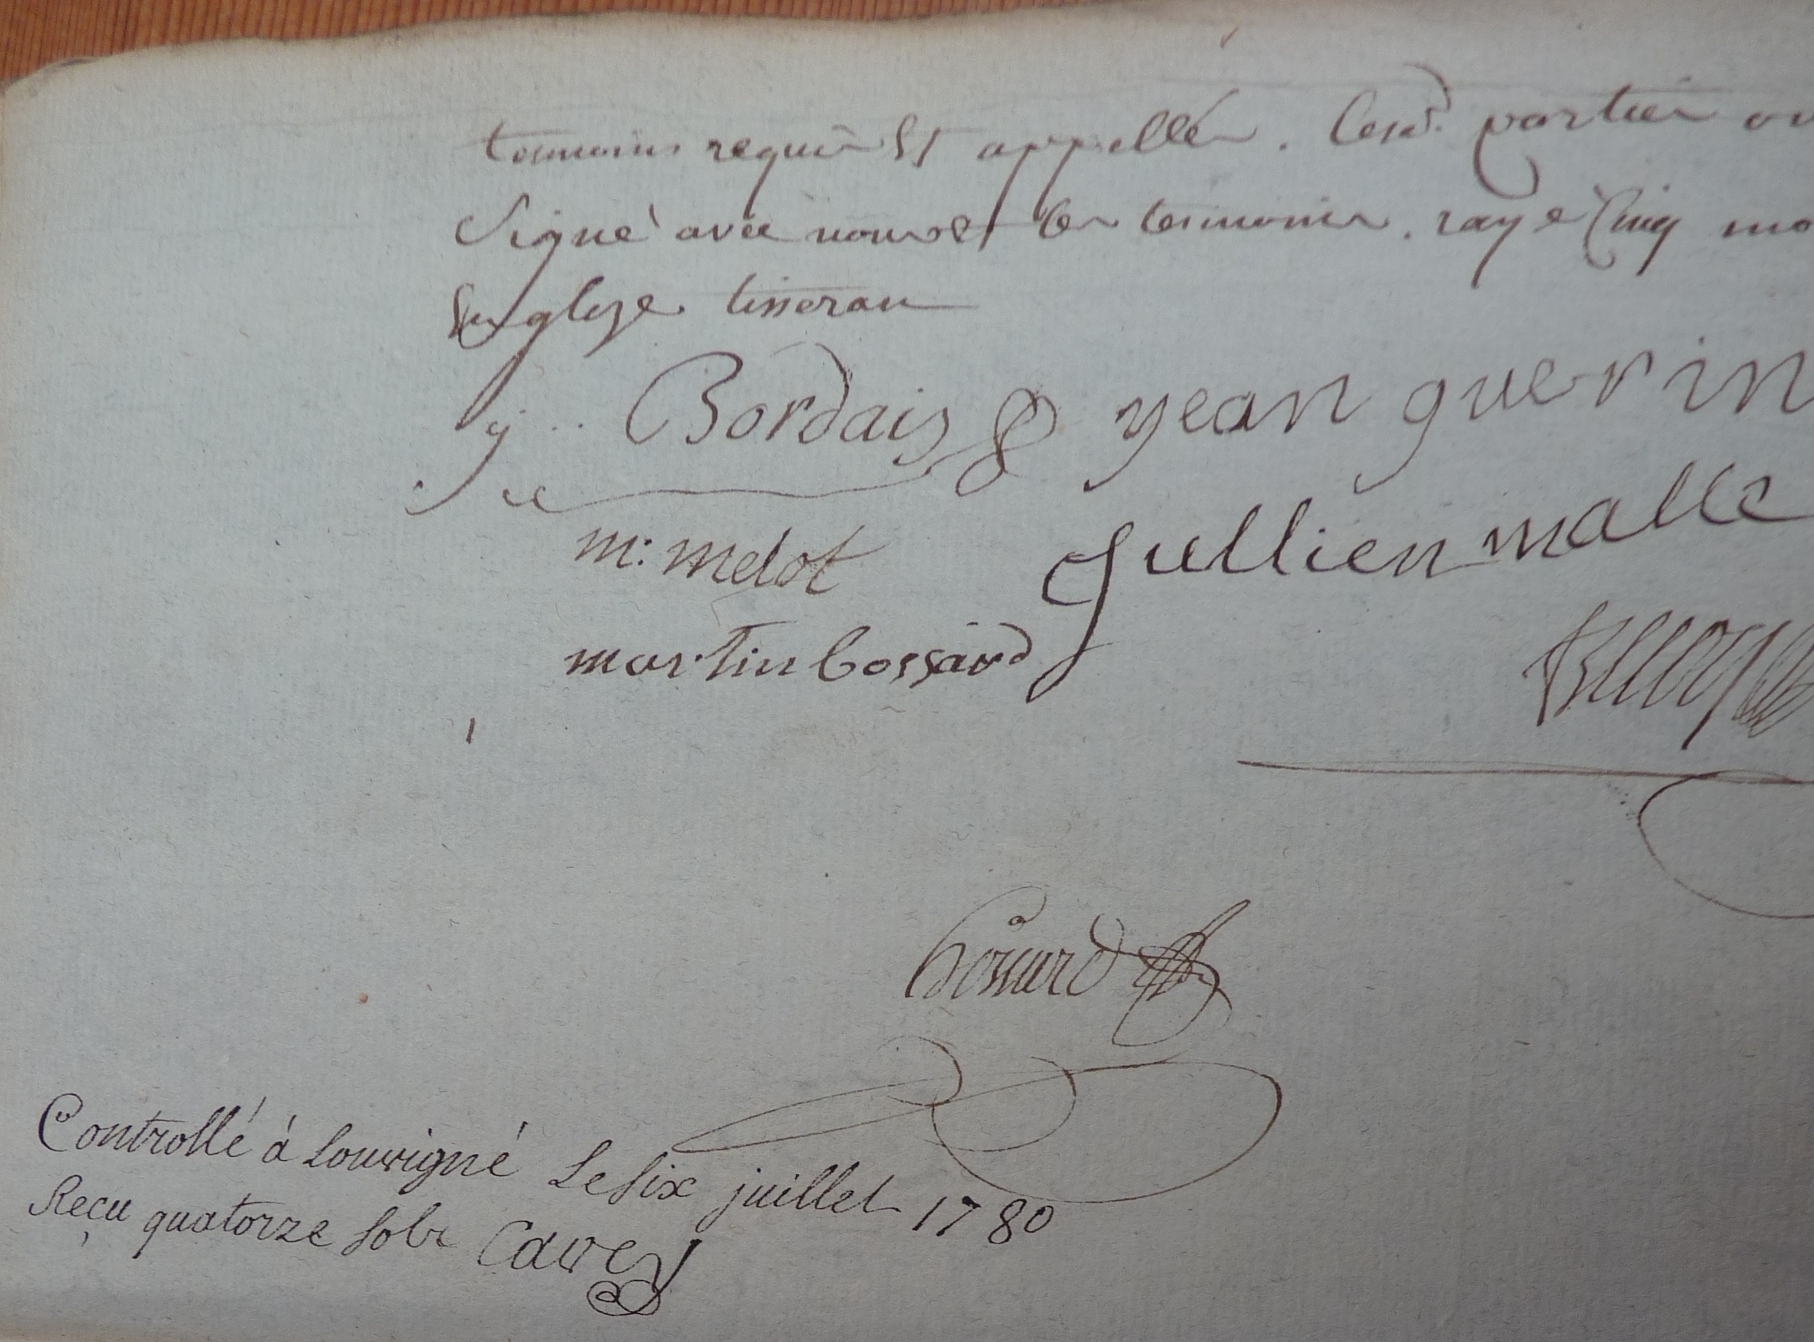 temoins requis et appellés. Lesd. parties on
Signé avec nous et les temoins. rayé Cinq mo
En gloze tisseran
y .. Bordais yean guerin
m: melot Jullien malle
martin bossard
Controllé á Louvigné Le Six juillet 1780
Reçu quatorze Sols Cavey